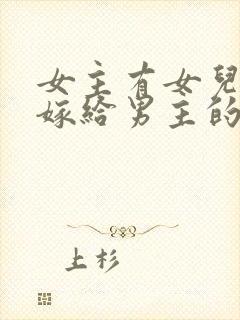 女主有女兒
嫁給男主的
上杉